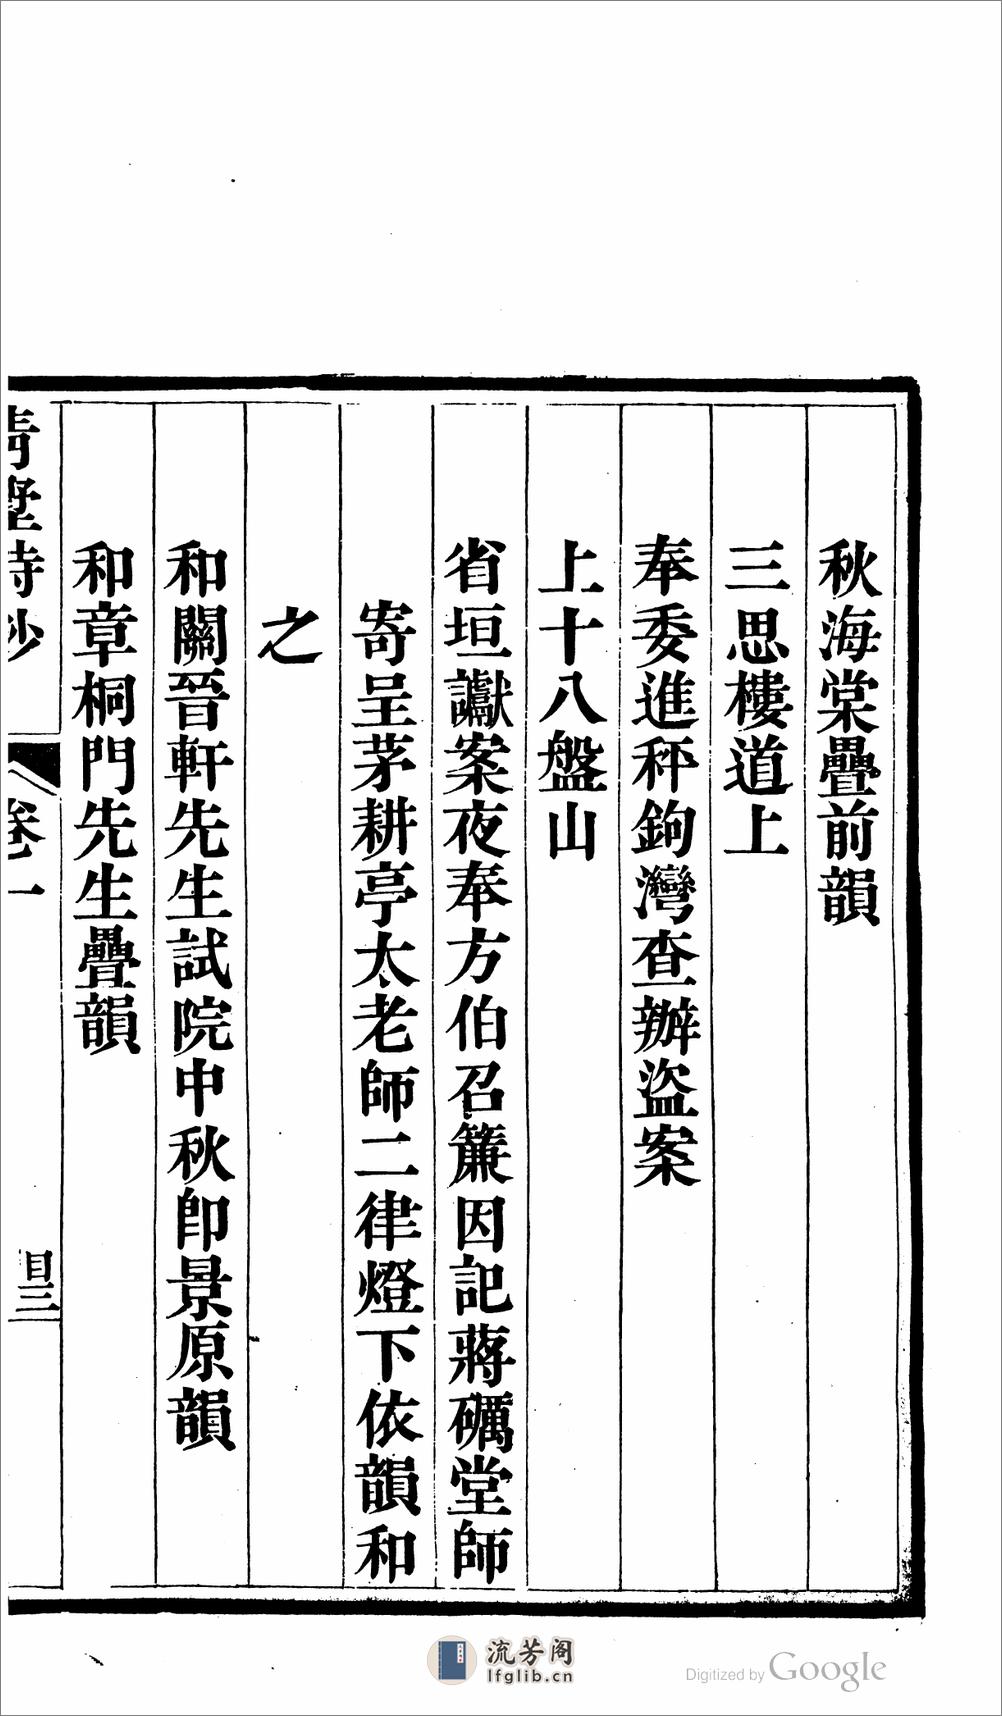 秋海棠疊前韻
三思樓道上
奉委進秤鉤灣查辦盜案
上十八盤山
省垣讞案夜奉方伯召簾因記蔣礪堂師
寄呈茅耕亭太老師二律燈下依韻和
之
和關晉軒先生試院中秋卽景原韻
和章桐門先生疊韻
青墅詩鈔
卷一
目三
流芳阁
lfglib.cn
Digitized by Google